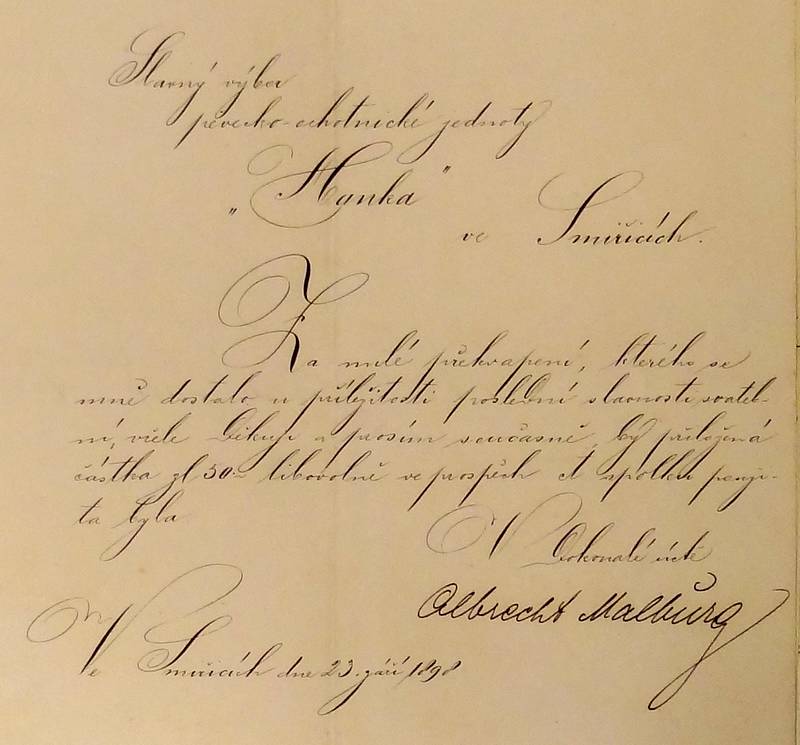 Slavný výbor
pěvecko-ochotnické jednoty
„Hanka"
ve Smiřicích.
Za milé překvapení, kterého se
mně dostalo u příležitosti poslední slavnosti svateb-
ní, vřele děkuji a prosím současně, by přiložená
částka zl 50 libovolně ve prospěch ct spolku použi-
ta byla
V dokonalé úctě
Albrecht Malburg
Ve Smiřicích dne 23. září 1898